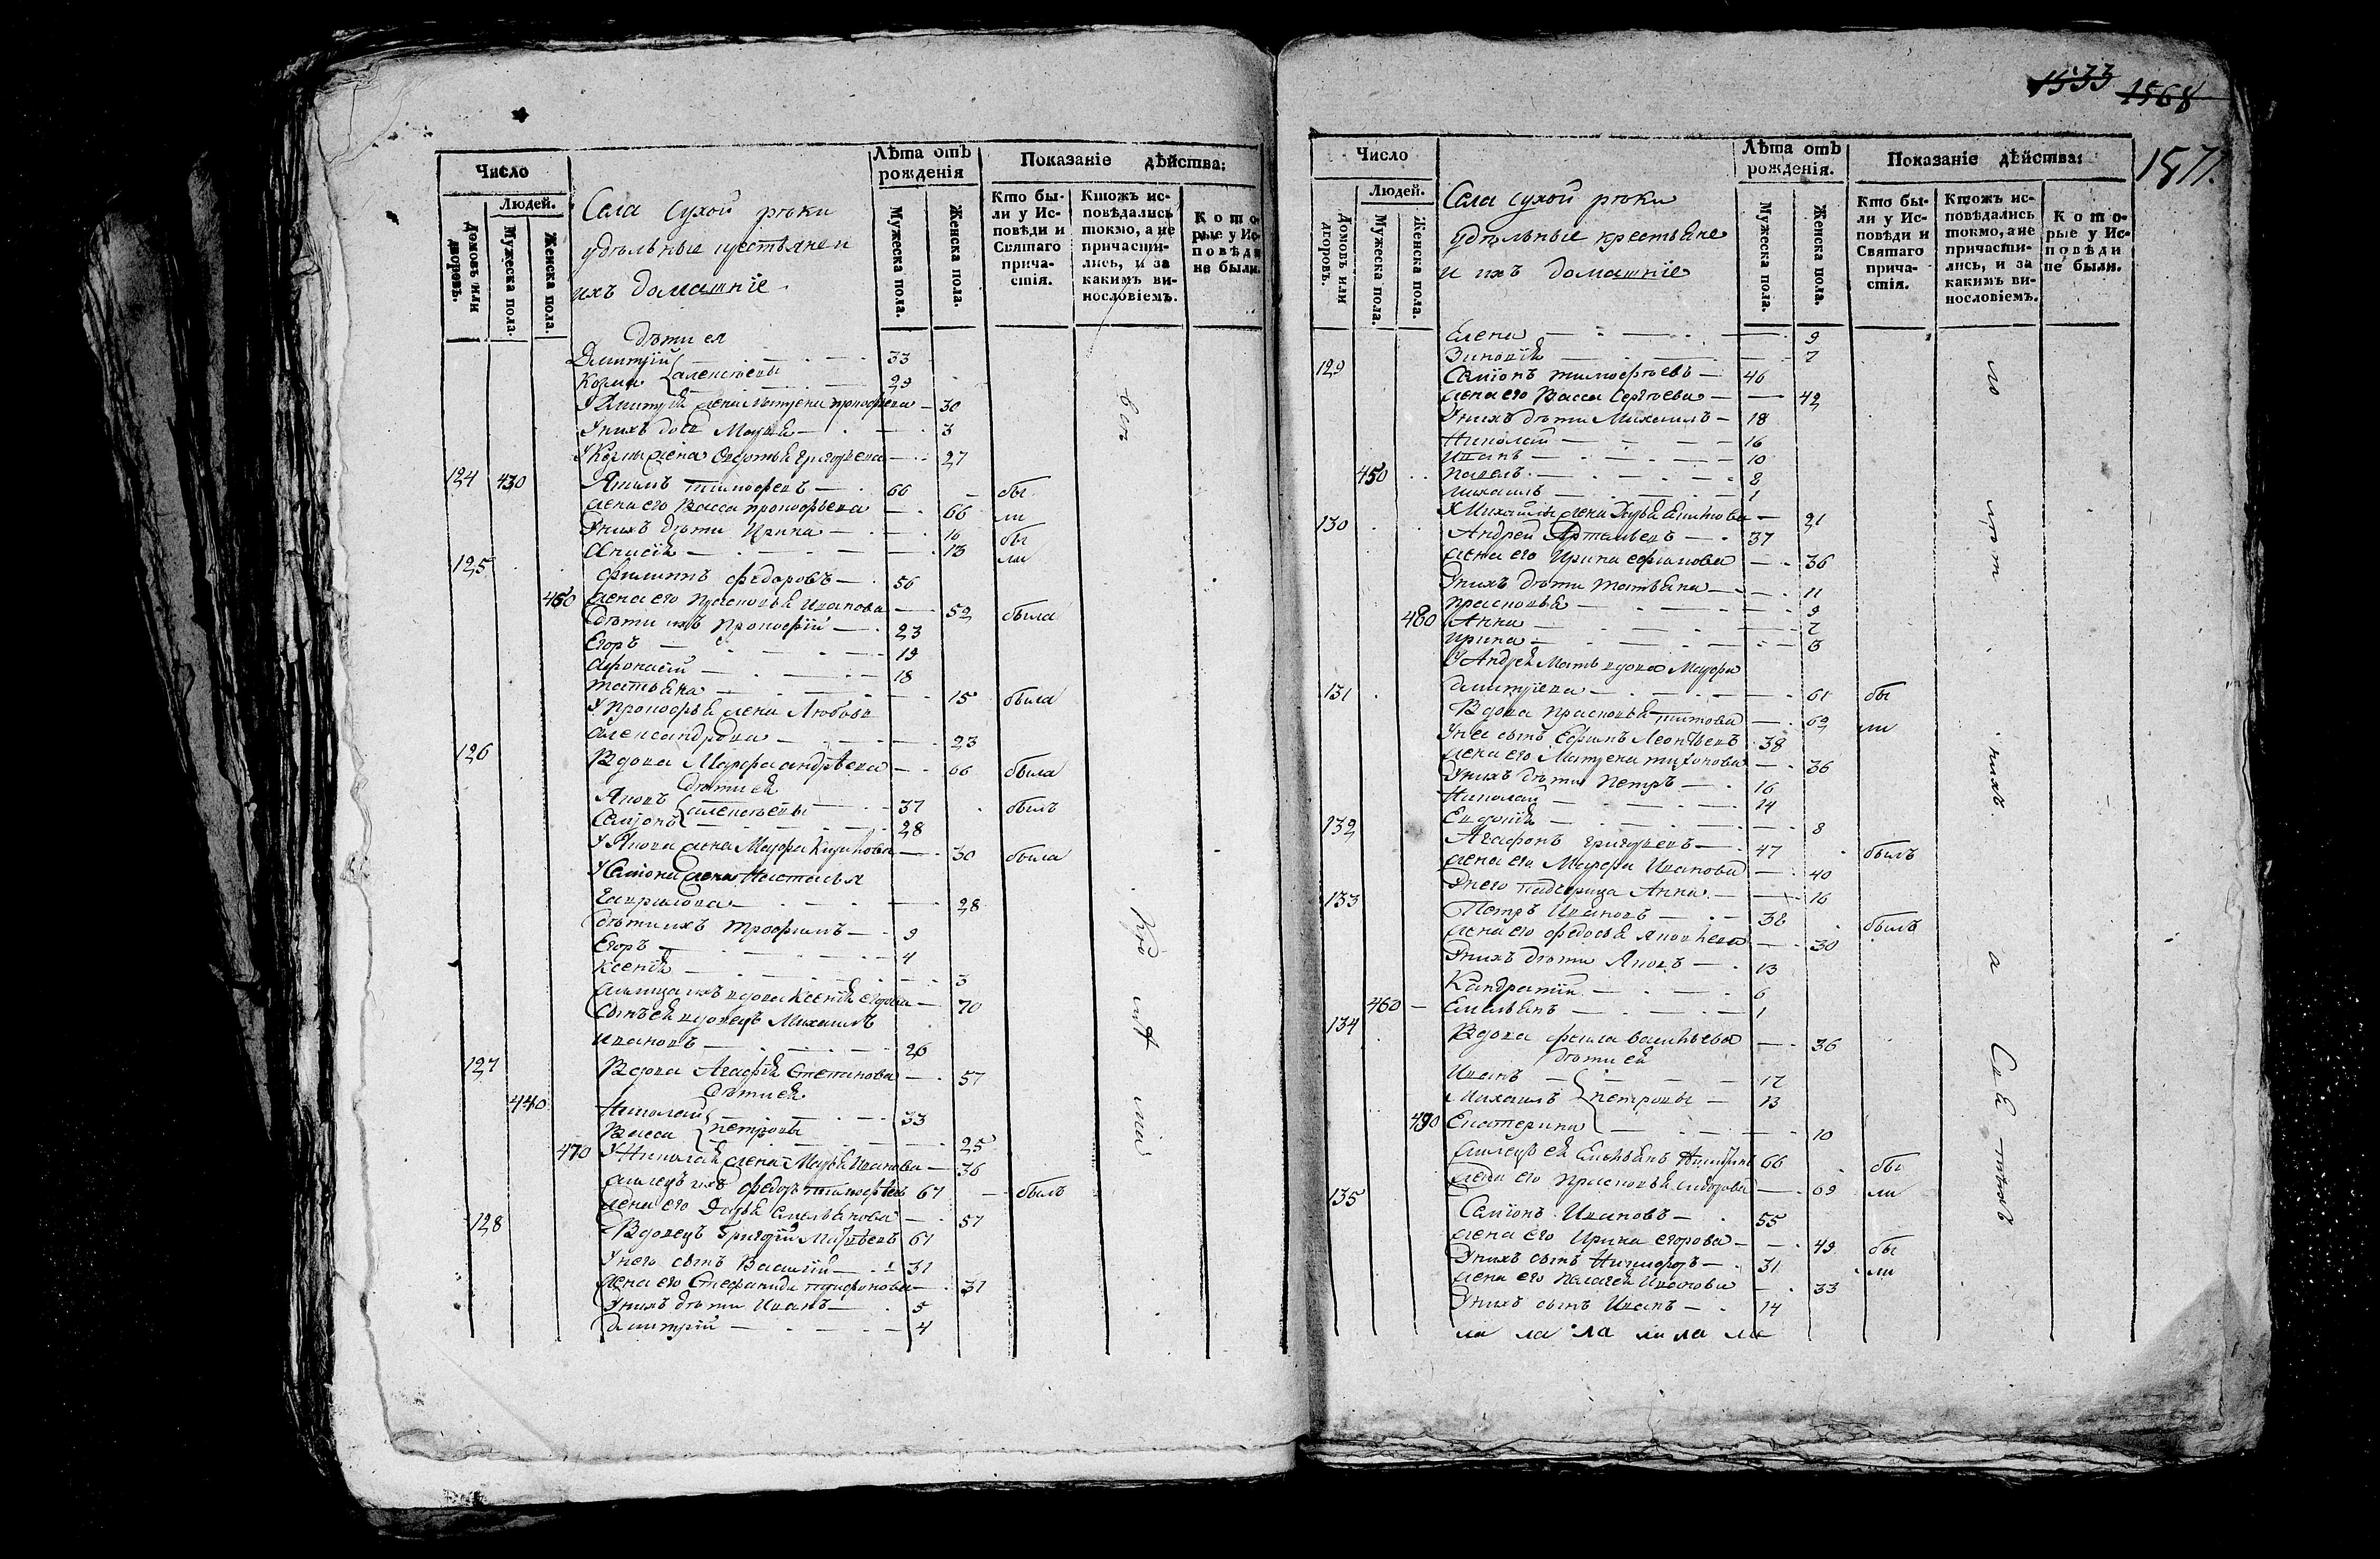 Число
Людей.
Домовъ или дворовъ.
Мужеска пола.
Женска пола.
Села Сухой рѣки
удѣльные крестьяне и
ихъ домашніе
Лѣта отъ рожденія
Мужеска пола.
Женска пола.
Показаніе дѣйства:
Кто были у Исповѣди и Святаго причастія.
Ктожъ исповѣдались токмо, а не причастились, и за какимъ винословіемъ.
Которые у Исповѣди не были.
дѣти ея
Дмитрій 33
Козма алексѣевы 29
У Дмитрія жена Матрена прокофьева 30
У нихъ дочь Марья 3
У Козмы жена Авдотья григорьева 27
124 430 Якимъ тимофеевъ 66 бы
жена его Васса прокофьева 66 ли
У нихъ дѣти Ирина 16 бы
Анисія 13 ли
125 филиппъ федоровъ 56
460 жена его Прасковья Иванова 52 была
дѣти ихъ Прокофій 23
Егоръ 19
афонасій 18
татьяна 15 была
У Прокофья жена Любовь
александрова 23
126 Вдова Марфа андрѣева 66 была
дѣти ея
Яковъ алексѣевы 37 былъ
Самсонъ 28
У Якова жена Марфа 30 была
У Самсона жена Наталья
Гаврилова 28
дѣти ихъ трофимъ 9
Егоръ 4
Ксенія 3
вдова Ксенія 70
сынъ ея вдовецъ Михаилъ
ивановъ 26
127 Вдова Агафія Степанова 57
дѣти ея
440 Николай 33
Васса петровы 25
470 У Николая жена Марья Иванова 36
ихъ федоръ тимофеевъ 67 былъ
жена его Дарья Емельянова 57
128 Вдовецъ Григорій 61
У него сынъ Василій 31
жена его Стефанида трифонова 31
У нихъ дѣти Иванъ 5
дмитрій 4
1533 1568
1571.
Число
Людей.
Домовъ или дворовъ.
Мужеска пола.
Женска пола.
Села Сухой рѣки
Удѣльные крестьяне
и ихъ домашніе
Лѣта отъ рожденія.
Мужеска пола.
Женска пола.
Показаніе дѣйства:
Кто были у Исповѣди и Святаго причастія.
Ктожъ исповѣдались токмо, а не причастились, и за какимъ винословіемъ.
Которые у Исповѣди не были.
Елена 9
Зиновія 7
129 Самсонъ тимофѣевъ 46
жена его Васса Сергѣева 42
У нихъ дѣти Михаилъ 18
Николай 16
Иванъ 10
450 Павелъ 8
Михаилъ 1
У Михайлы жена 21
130 Андрей 37
жена его Ирина ефимова 36
У нихъ дѣти татьяна 11
прасковья 9
480 Анна 7
ирина 3
У Андрея мать вдова Марфа
дмитріева 61 бы
131 Вдова прасковья титова 62 ли
У нея сынъ Ефимъ Леонтьевъ 38
жена его Матрена тихонова 36
У нихъ дѣти петръ 16
Николай 14
Евдокія 8
132 Агафонъ григорьевъ 47 былъ
жена его Марфа Иванова 40
У него падчерица Анна 16
133 Петръ Ивановъ 38 былъ
жена его федосья яковлева 30
У нихъ дѣти Яковъ 13
Кандратій 6
460 Емельянъ 1
134 Вдова фекла васильева 36
дѣти ея
Иванъ 17
Михаилъ петровы 13
490 Екатерина 10
ея Емельянъ 66 бы
жена его прасковья 69 ли
135 Самсонъ Ивановъ 55
жена его Ирина егорова 49 бы
У нихъ сынъ Никифоръ 31 ли
жена его Пелагея Иванова 33
У нихъ сынъ Иванъ 14